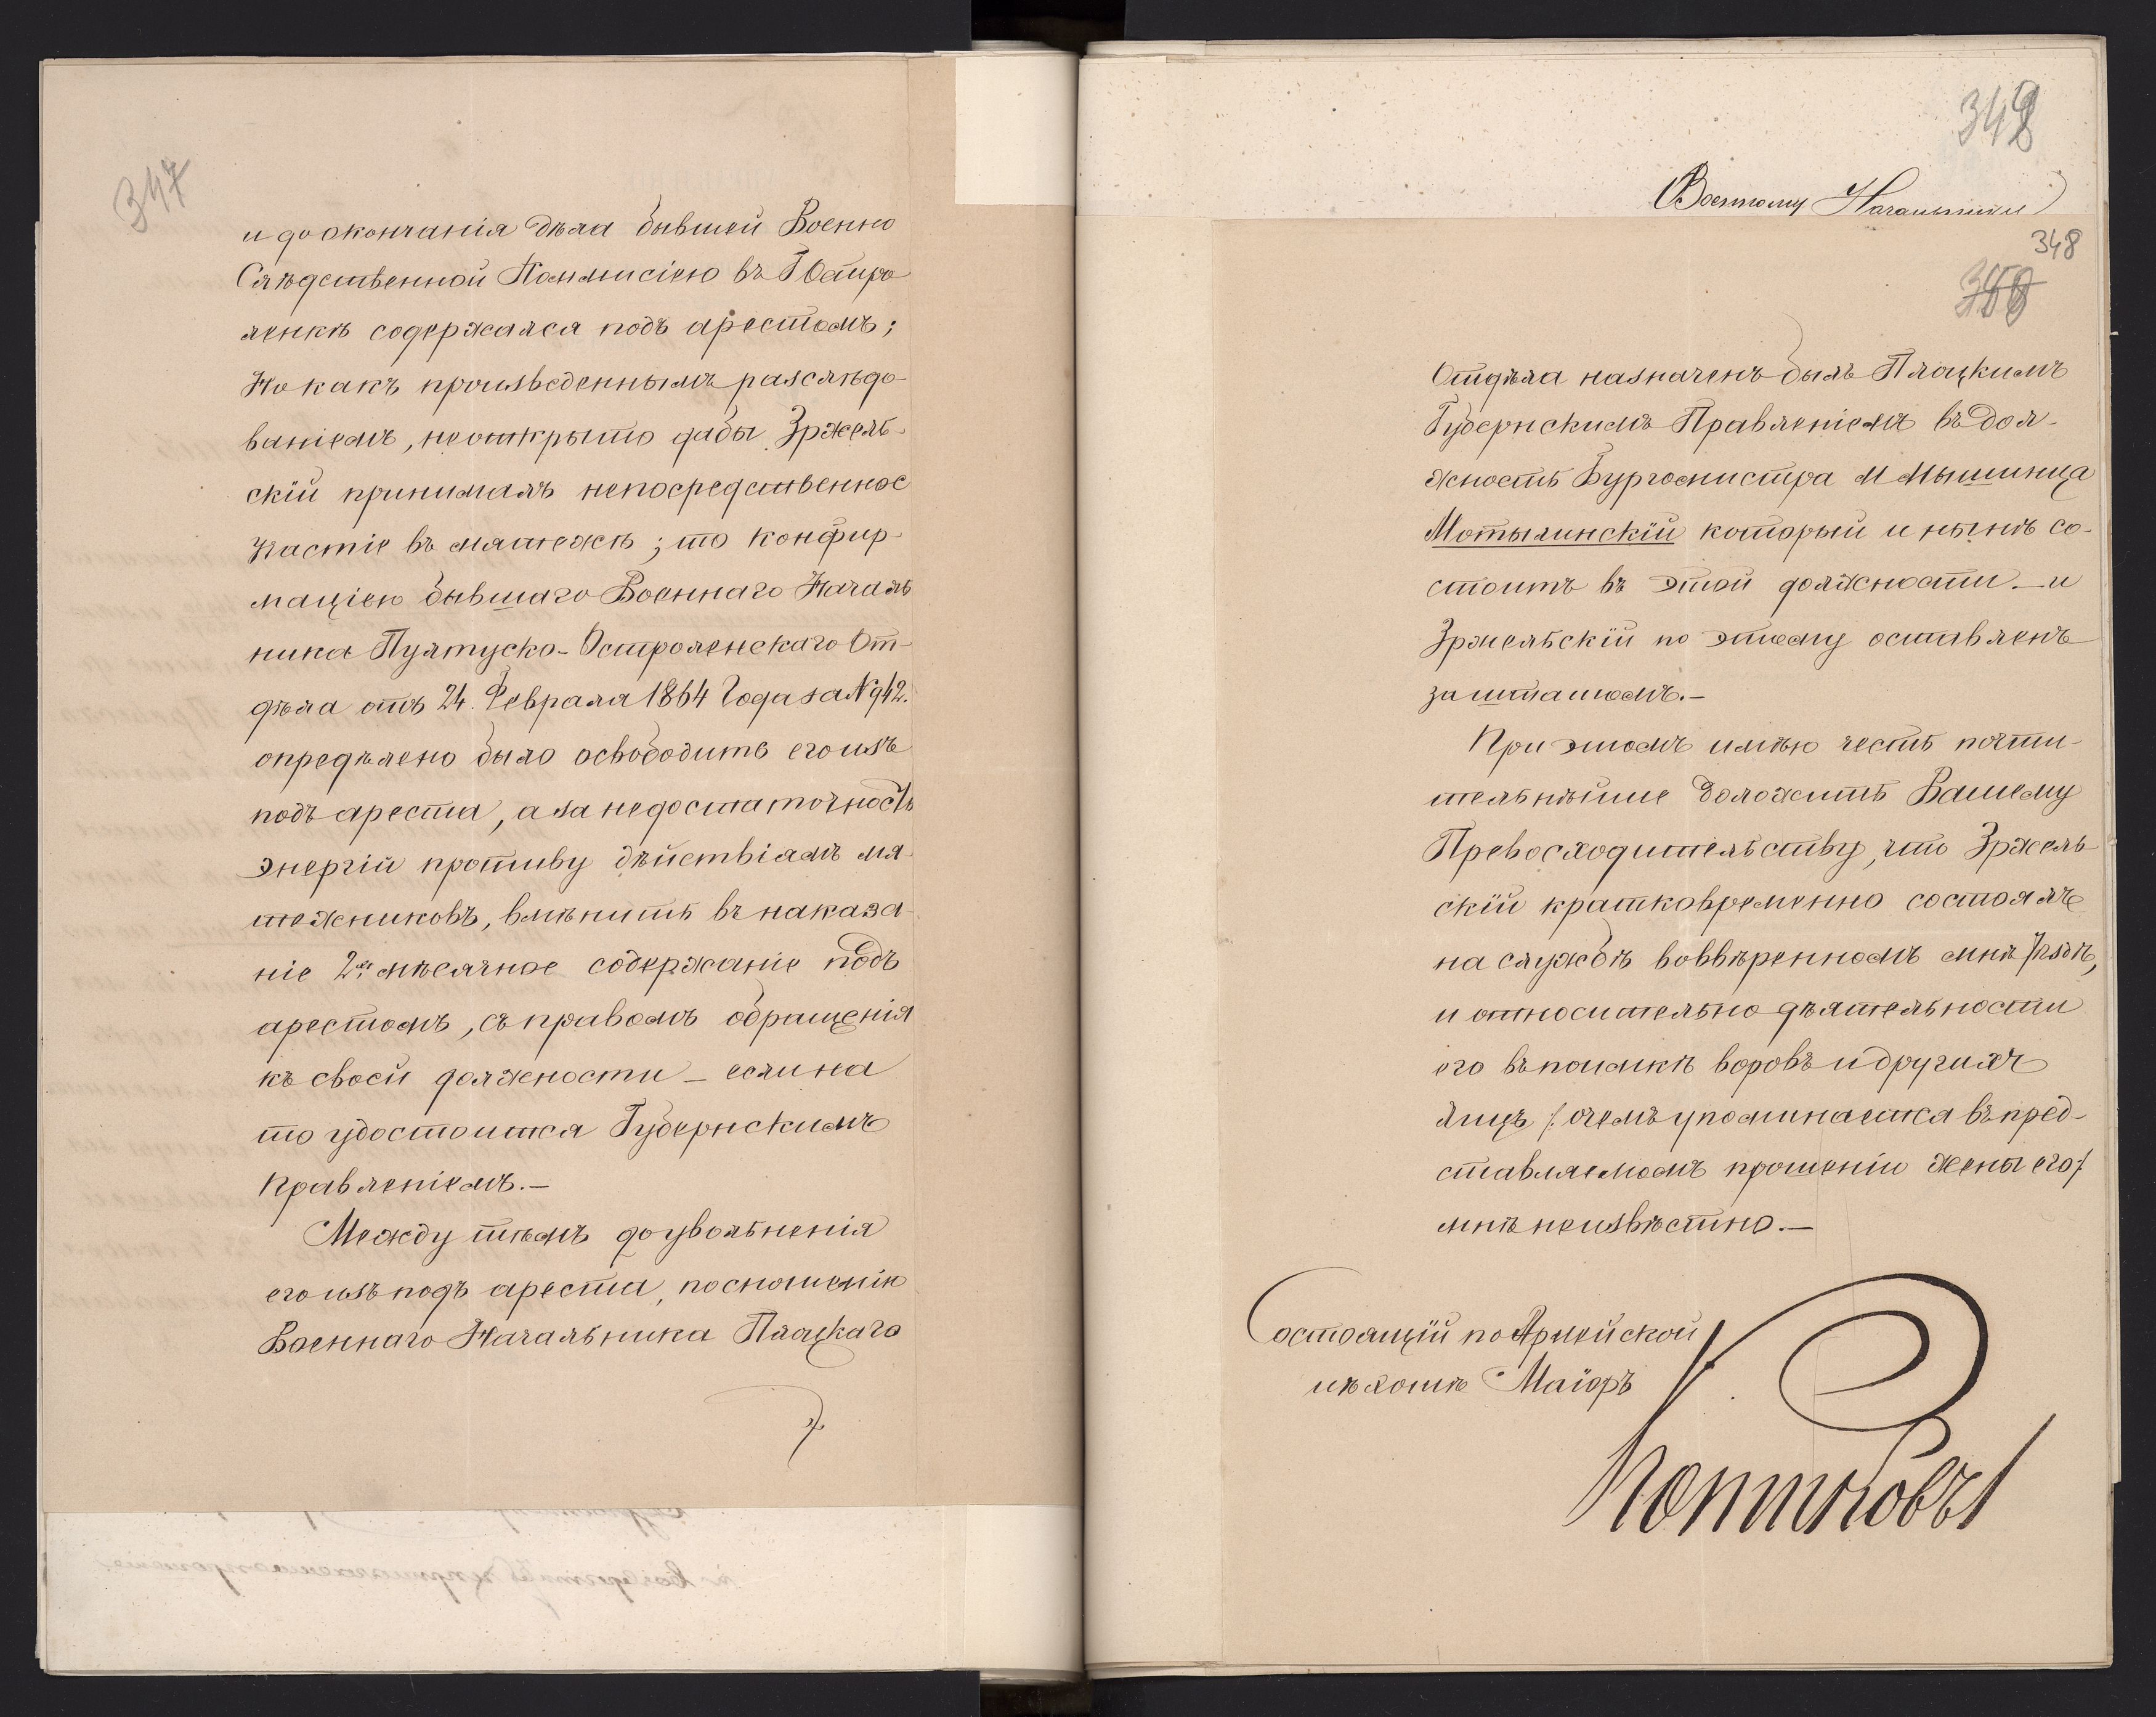 347
и до окончанія дѣла бывшей Военно
Слѣдственной Коммисіею въ Г Остро
ленкѣ содержался подъ арестомъ;
Но какъ произведеннымъ разслѣдо-
ваніемъ, неоткрыто дабы Зржель-
скій принималъ непосредственное
участіе въ мятежѣ; то конфир-
маціею бывшаго Военнаго Началь
ника Пултуско-Остроленскаго От-
дѣла отъ 24. Февраля 1864 Года за № 942.
опредѣлено было освободить его изъ
подъ ареста, а за недостаточность
энергіи противу дѣйствіямъ мя-
тежниковъ, вмѣнить въ наказа-
ніе 2хъ мѣсячное содержаніе подъ
арестомъ, съ правомъ обращенія
къ своей должности – если на
то удостоится Губернскимъ
Правленіемъ.–
Между тѣмъ до увольненія
его изъ подъ ареста, по сношенію
Военнаго Начальника Плоцкаго
349
Военному Начальнику
348
Отдѣла назначенъ былъ Плоцкимъ
Губернскимъ Правленіемъ въ дол-
жность Бургомистра М Мышинца
Мотылинскій который и нынѣ со-
стоитъ въ этой должности.– и
Зржельскій по этому оставленъ
за штатомъ.–
При этомъ имѣю честь почти-
тельнѣйше доложить Вашему
Превосходительству, что Зржель
скій кратковременно состоялъ
на службѣ во ввѣренномъ мнѣ Уѣздѣ,
и относительно дѣятельности
его въ поимкѣ воровъ и другихъ
лицъ /: о чемъ упоминается въ пред-
ставляемомъ прошеніи жены его :/
мнѣ неизвѣстно.–
Состоящій по Армейской
пѣхотѣ Маіоръ